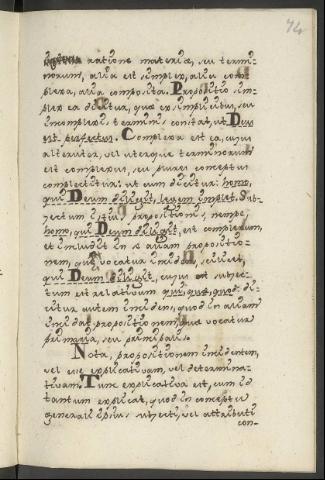 74
ratione materiæ, seu termi-
norum, alia est simplex, alia com
plexa, alia composita. Propositio sim-
plex ea dicitur, quæ ex simplicibus, seu
incomplexis terminis constat, ut Deus
est perfectus. Complexa est ea, cujus
alteruter, vel uterque terminorum
est complexus, seu plures conceptus
complectitur: ut cum dicitur: homo,
qui Deum diligit, legem implet. Sub-
jectum istius propositionis, nempe,
homo, qui Deum diligit, est complexum,
et includit in se aliam propositio-
nem, quæ vocatur incidens, scilicet,
qui Deum diligit, cujus subjec-
tum est relativum qui, quæ, quod: di-
citur autem incidens, quod in aliam
incidat propositionem, quæ vocatur
primaria, seu principalis.
Nota, propositionem incidentem,
vel esse explicativam, vel determina-
tivam. Tunc explicativa est, cum id
tantum explicat, quod in conceptu
generali ipsius subjecti, vel attributi
con-